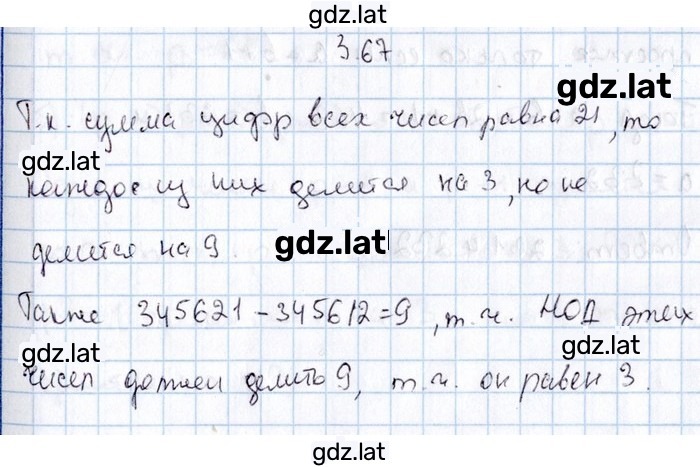 gdz.lat
3.67
gdz.lat
Т.к. сумма цифр всех чисел равна 21, то
gdz.lat
каждое из них делится на 3, но не
делится на 9.
gdz.lat
Также 345621 - 345612 = 9, т.ч. НОД этих
gdz.lat
gdz.lat
чисел должен делить 9, т.ч. он равен 3.
gdz.lat